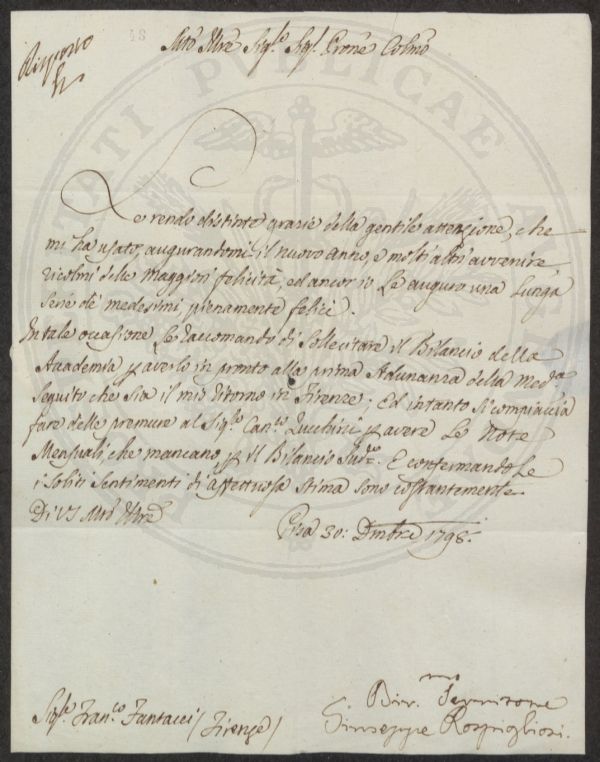 Risposto
48
Mto Illre Sigre Sigr Prone Colmo
Le rendo distinte grazie della gentile attenzione, che
mi ha usato, augurandomi il nuovo anno, e molti altri avvenire
ricolmi delle maggiori felicità, ed ancor io Le auguro una Lunga
Serie de' medesimi pienamente felici.
In tale occasione Le raccomando di Sollecitare il Bilancio della
Accademia p averlo in pronto alla prima Adunanza della Meda
Seguito che sia il mio ritorno in Firenze; Ed intanto Si compiaccia
fare delle premure al Sigre Canco Zucchini p avere Le Note
Mensuali, che mancano p il Bilancio Sudo. E confermandole
i Soliti Sentimenti di affettuosa Stima sono costantemente
Di VS Mto Illre
Pisa 30: Dmbre 1798.
Sigre Franco Fantacci (Firenze)
Divmo Servitore
Giuseppe Rospigliosi.
PUBLICAE